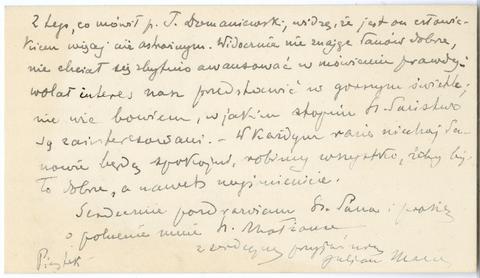 Z tego, co mówił p. T. Domaniewski, widzę, że jest on człowie-
kiem więcej niż ostrożnym. Widocznie nie znając Panów dobrze,
nie chciał się zbytnio awansować w mówieniu prawdy i
wolał interes nasz przedstawić w gorszym świetle,
nie wie bowiem, w jakim stopniu Sz. Państwo
są zainteresowani. – W każdym razie niechaj Pa-
nowie będą spokojni, robimy wszystko, żeby by-
ło dobre, a nawet
Serdecznie pozdrawiam Sz. Pana i proszę
o polecenie mnie Sz. Małżonce
z serdeczną przyjaźnią
Piątek Julian